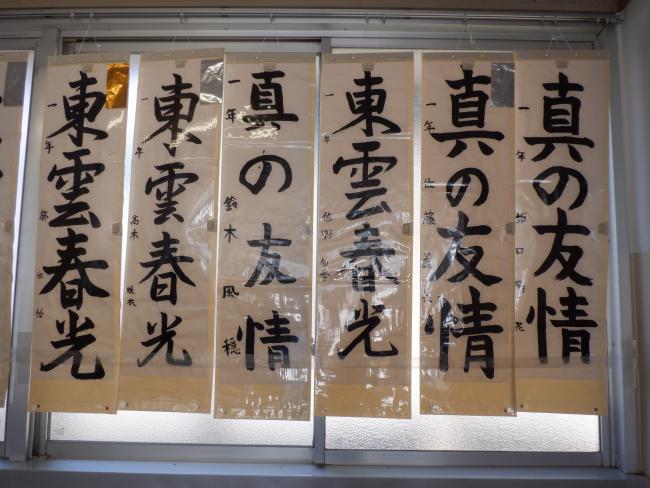 真の友情
一年 坂口 花
真の友情
一年 佐藤
東雲春光
一年 佐野
真の友情
一年 鈴木 風穂
東雲春光
一年 高木
東雲春光
一年